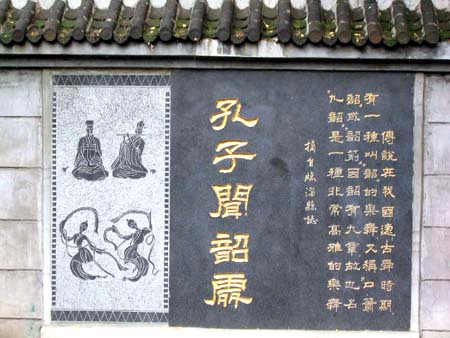 傳說在我國遠古舜時期
有一種叫韶的樂舞又稱簫
韶或韶箾因韶有九章故也名
九韶是一種非常高雅的樂舞
摘自臨淄縣志
孔子聞韶處